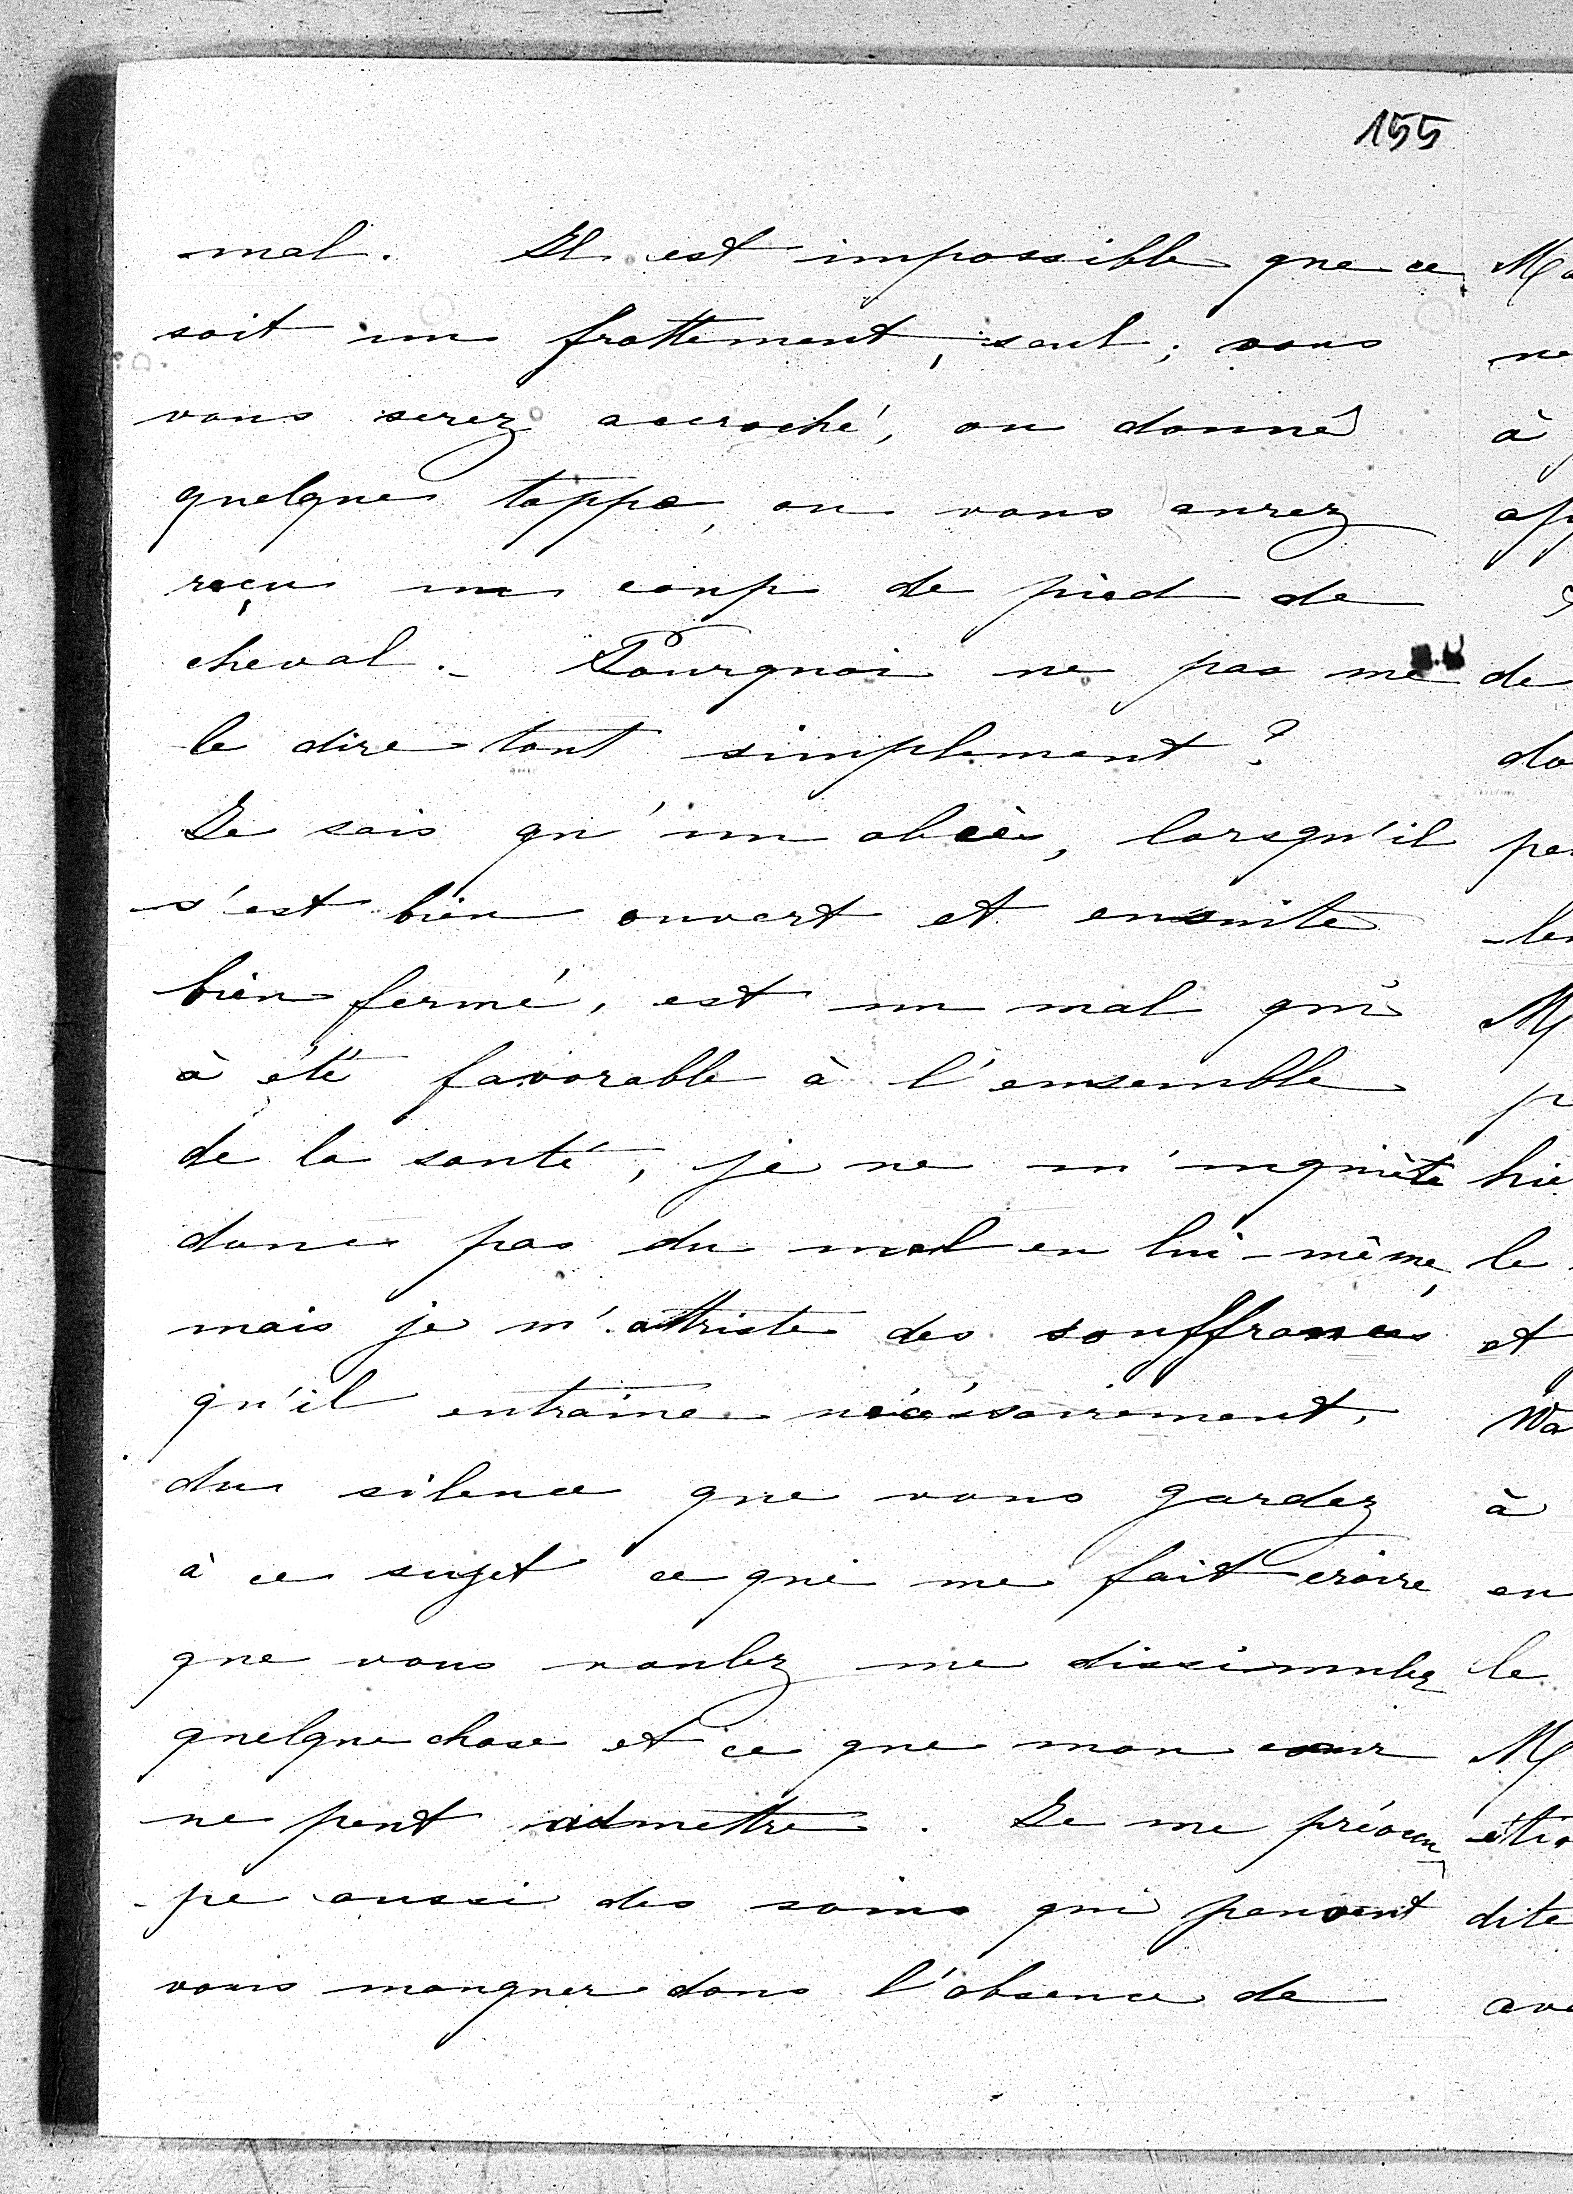 155
mal. Il est impossible que ce
soit un frottement, seul; vous
vous serez accroché, ou donné
quelque tappe, ou vous aurez
reçu un coup de pied de
cheval. - Pourquoi ne pas me
le dire tout simplement?
Je sais qu'un abcès, lorsqu'il
s'est bien ouvert et ensuite
bien fermé, est un mal qui
à été favorable à l'ensemble
de la santé, je ne m'inquiète
donc pas du mal en lui-même,
mais je m'attriste des souffrances
qu'il entraine nécéssairement,
du silence que vous gardez
à ce sujet ce qui me fait croire
que vous voulez me dissimuler
quelque chose et ce que mon cœur
ne peut admettre. Je me préocu
-pe aussi des soins qui peuvent
vous manquer dans l'absence de